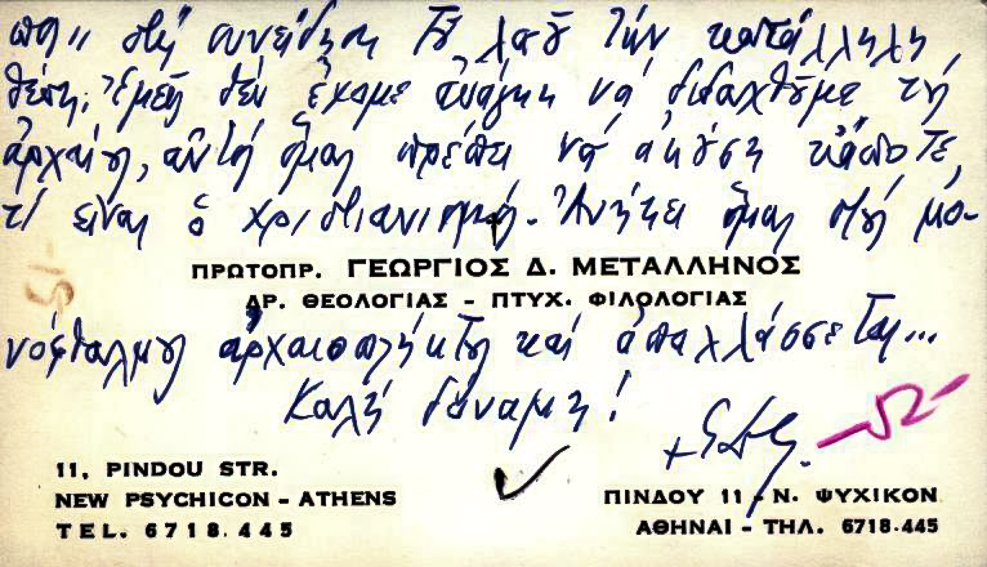 στή συνείδηση τȣ λαȣ τήν κατάλληλη
θέση. Ἐμεῖς δέν ἔχομε ἀνάγκη νά διδαχθȣμε τȣς
ἀρχαίȣς, αὐτός ὅμως πρέπει νά ἀκȣση κάποτε,
τί εἶναι ὁ χριστιανισμός. Ἀνήκει ὅμως στȣς μο-
ΠΡΩΤΟΠΡ. ΓΕΩΡΓΙΟΣ Δ. ΜΕΤΑΛΛΗΝΟΣ
ΔΡ. ΘΕΟΛΟΓΙΑΣ - ΠΤΥΧ. ΦΙΛΟΛΟΓΙΑΣ
νόφθαλμȣς ἀρχαιοπλήκτȣς καί ἀπαλλάσσεται...
Καλή δύναμη!
11, PINDOU STR.
NEW PSYCHICON - ATHENS
TEL. 6718.445
ΠΙΝΔΟΥ 11 - Ν. ΨΥΧΙΚΟΝ
ΑΘΗΝΑΙ - ΤΗΛ. 6718-445